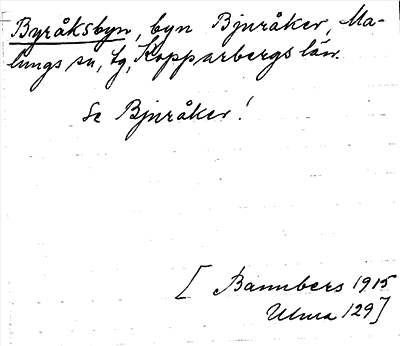 Byråksbyn, byn Bjuråker, Ma-
lungs sn, fg, Kopparbergs län.
Se Bjuråker!
[Bannbers 1915
Ulma 129]